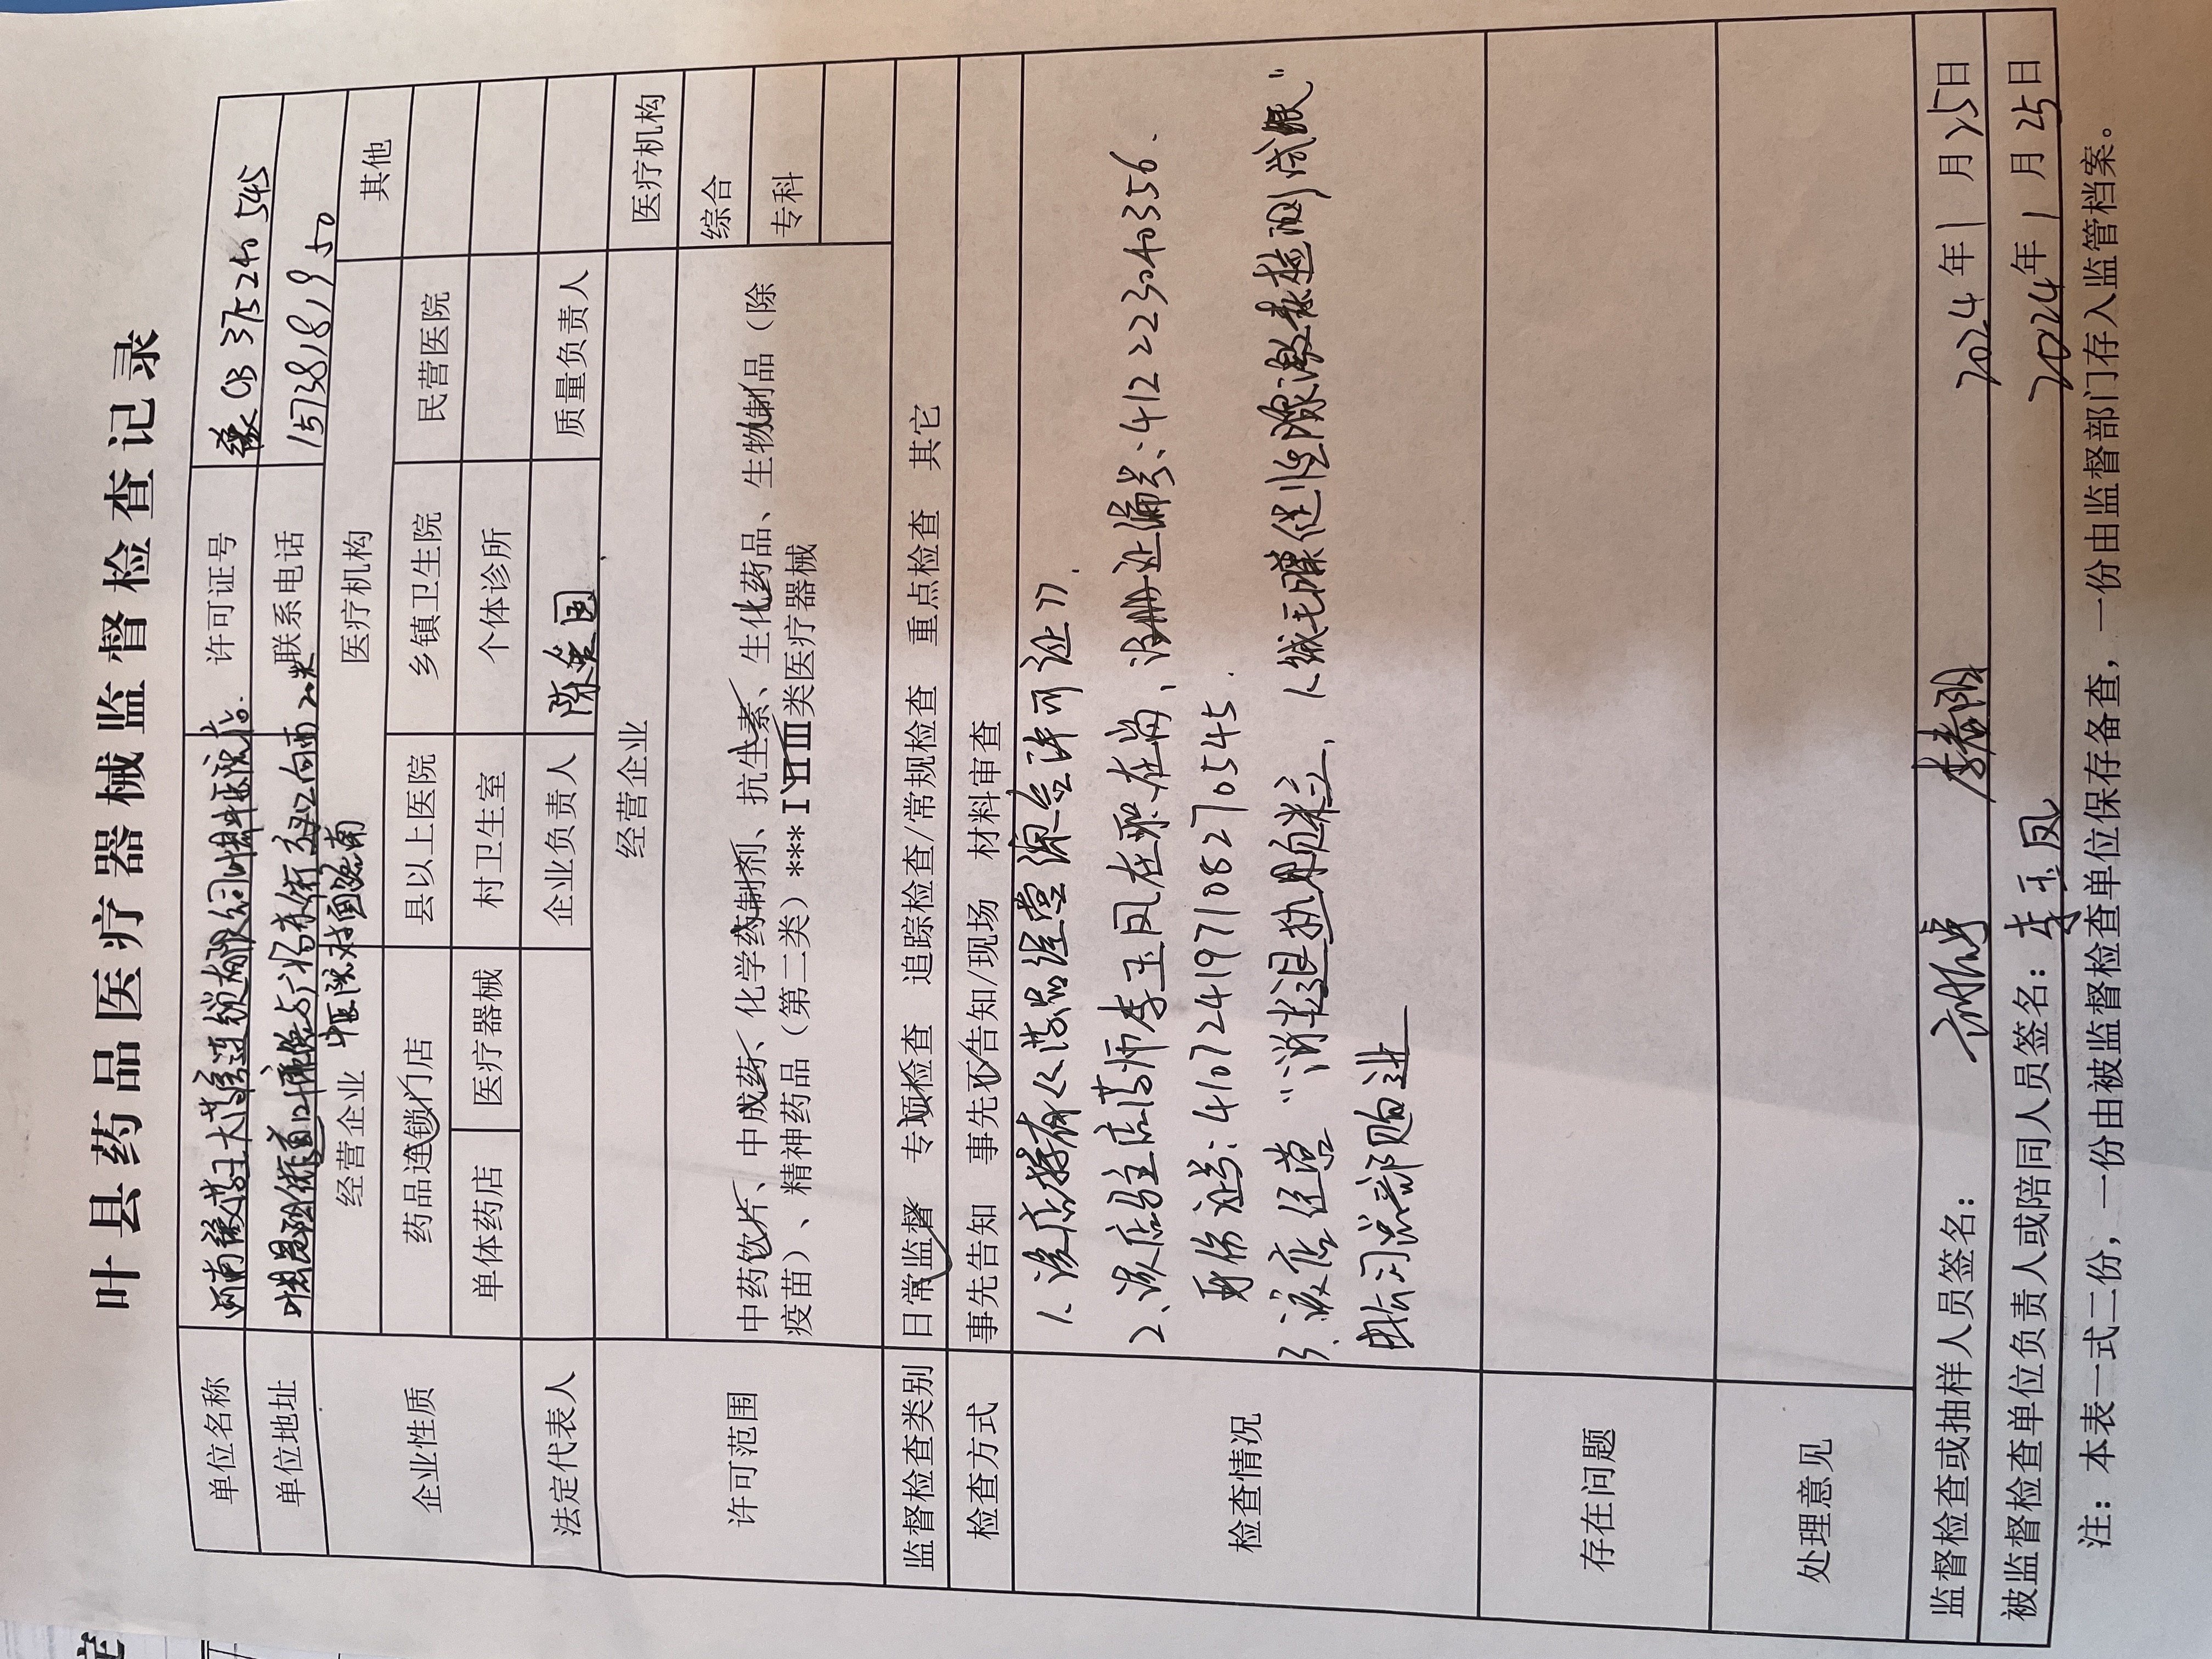 叶县药品医疗器械监督检查记录
单位名称 河南豫药王大药房连锁有限公司叶县中医院店 许可证号 豫CB375240545
单位地址 叶县昆阳街道 向西20米 联系电话 15738181950
中医院对面路南
企业性质 经营企业 医疗机构 其他
药品连锁门店 县以上医院 乡镇卫生院 民营医院
单体药店 医疗器械 村卫生室 个体诊所
法定代表人 企业负责人 陈 国 质量负责人
许可范围 经营企业 医疗机构
中药饮片、中成药、化学药制剂、抗生素、生化药品、生物制品(除
疫苗)、精神药品(第二类)***I II III类医疗器械
综合
专科
监督检查类别 日常监督 专项检查 追踪检查/常规检查 重点检查 其它
检查方式 事先告知 事先不告知/现场 材料审查
检查情况
1、该店持有《药品经营许可证》.
2、该店驻店药师李玉凤在职在岗、注册证编号:412223040356、
身份证号:410724197108270545.
3、该店经营“消栓退热颗粒、人绒毛膜促性腺激素检测试纸”
由公司总部购进
存在问题
处理意见
监督检查或抽样人员签名: 2024年1月25日
被监督检查单位负责人或陪同人员签名: 李玉凤 2024年1月25日
注:本表一式二份,一份由被监督检查单位保存备查,一份由监督部门存入监管档案。